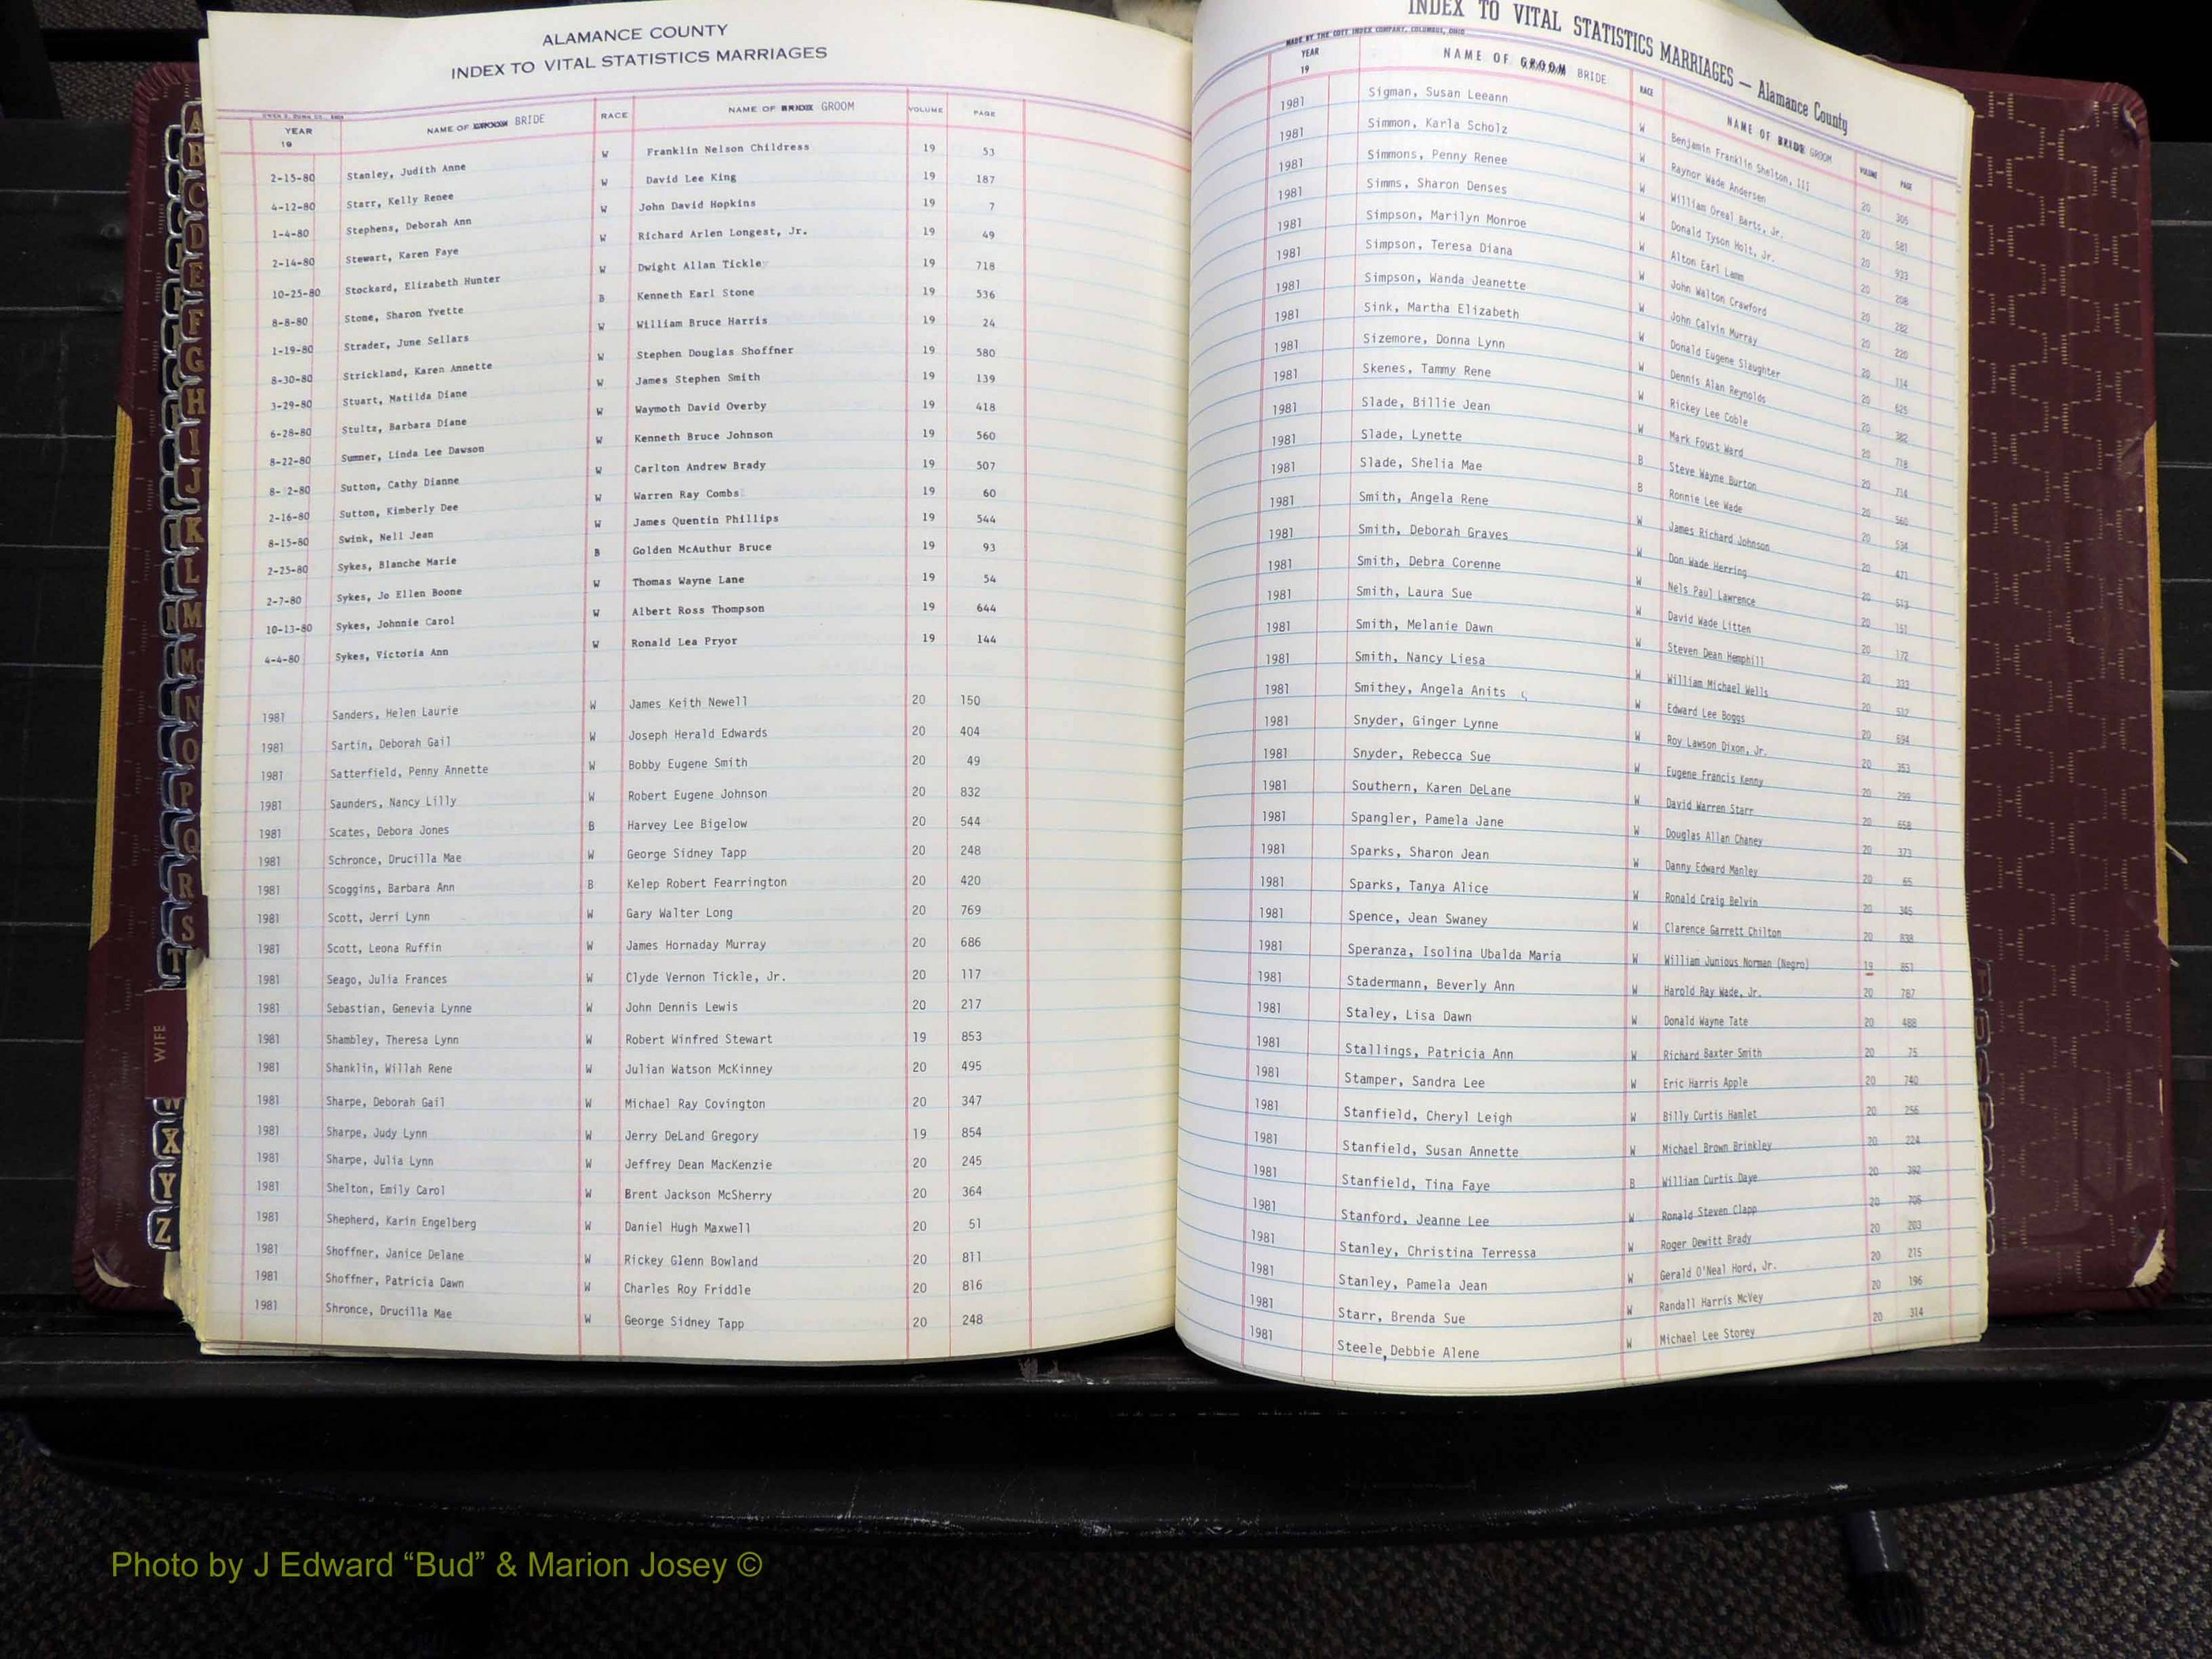 ALAMANCE COUNTY
INDEX TO VITAL STATISTICS MARRIAGES
YEAR 19 NAME OF GROOM BRIDE RACE NAME OF BRIDE GROOM VOLUME PAGE
2-15-80 Stanley, Judith Anne W Franklin Nelson Childress 19 53
4-12-80 Starr, Kelly Renee W David Lee King 19 187
1-4-80 Stephens, Deborah Ann W John David Hopkins 19 7
2-14-80 Stewart, Karen Faye W Richard Arlen Longest, Jr. 19 49
10-25-80 Stockard, Elizabeth Hunter W Dwight Allan Tickle 19 718
8-8-80 Stone, Sharon Yvette B Kenneth Earl Stone 19 536
1-19-80 Strader, June Sellars W William Bruce Harris 19 24
8-30-80 Strickland, Karen Annette W Stephen Douglas Shoffner 19 580
3-29-80 Stuart, Matilda Diane W James Stephen Smith 19 139
6-28-80 Stultz, Barbara Diane W Waymoth David Overby 19 418
8-22-80 Sumner, Linda Lee Dawson W Kenneth Bruce Johnson 19 560
8- 2-80 Sutton, Cathy Dianne W Carlton Andrew Brady 19 507
2-16-80 Sutton, Kimberly Dee W Warren Ray Combs 19 60
8-15-80 Swink, Nell Jean W James Quentin Phillips 19 544
2-25-80 Sykes, Blanche Marie B Golden McAuthur Bruce 19 93
2-7-80 Sykes, Jo Ellen Boone W Thomas Wayne Lane 19 54
10-13-80 Sykes, Johnnie Carol W Albert Ross Thompson 19 644
4-4-80 Sykes, Victoria Ann W Ronald Lea Pryor 19 144
1981 Sanders, Helen Laurie W James Keith Newell 20 150
1981 Sartin, Deborah Gail W Joseph Herald Edwards 20 404
1981 Satterfield, Penny Annette W Bobby Eugene Smith 20 49
1981 Saunders, Nancy Lilly W Robert Eugene Johnson 20 832
1981 Scates, Debora Jones B Harvey Lee Bigelow 20 544
1981 Schronce, Drucilla Mae W George Sidney Tapp 20 248
1981 Scoggins, Barbara Ann B Kelep Robert Fearrington 20 420
1981 Scott, Jerri Lynn W Gary Walter Long 20 769
1981 Scott, Leona Ruffin W James Hornaday Murray 20 686
1981 Seago, Julia Frances W Clyde Vernon Tickle, Jr. 20 117
1981 Sebastian, Genevia Lynne W John Dennis Lewis 20 217
1981 Shambley, Theresa Lynn W Robert Winfred Stewart 19 853
1981 Shanklin, Willah Rene W Julian Watson McKinney 20 495
1981 Sharpe, Deborah Gail W Michael Ray Covington 20 347
1981 Sharpe, Judy Lynn W Jerry DeLand Gregory 19 854
1981 Sharpe, Julia Lynn W Jeffrey Dean MacKenzie 20 245
1981 Shelton, Emily Carol W Brent Jackson McSherry 20 364
1981 Shepherd, Karin Engelberg W Daniel Hugh Maxwell 20 51
1981 Shoffner, Janice Delane W Rickey Glenn Bowland 20 811
1981 Shoffner, Patricia Dawn W Charles Roy Friddle 20 816
1981 Shronce, Drucilla Mae W George Sidney Tapp 20 248
INDEX TO VITAL STATISTICS MARRIAGES — Alamance County
MADE BY THE COTT INDEX COMPANY, COLUMBUS, OHIO
YEAR 19 NAME OF GROOM BRIDE RACE NAME OF BRIDE GROOM VOLUME PAGE
1981 Sigman, Susan Leeann W Benjamin Franklin Shelton, III 20 305
1981 Simmon, Karla Scholz W Raynor Wade Andersen 20 581
1981 Simmons, Penny Renee W William Oreal Barts, Jr. 20 933
1981 Simms, Sharon Denses W Donald Tyson Holt, Jr. 20 208
1981 Simpson, Marilyn Monroe W Alton Earl Lamm 20 282
1981 Simpson, Teresa Diana W John Walton Crawford 20 220
1981 Simpson, Wanda Jeanette W John Calvin Murray 20 114
1981 Sink, Martha Elizabeth W Donald Eugene Slaughter 20 625
1981 Sizemore, Donna Lynn W Dennis Alan Reynolds 20 382
1981 Skenes, Tammy Rene W Rickey Lee Coble 20 718
1981 Slade, Billie Jean W Mark Foust Ward 20 714
1981 Slade, Lynette B Steve Wayne Burton 20 560
1981 Slade, Shelia Mae B Ronnie Lee Wade 20 534
1981 Smith, Angela Rene W James Richard Johnson 20 471
1981 Smith, Deborah Graves W Don Wade Herring 20 513
1981 Smith, Debra Corenne W Nels Paul Lawrence 20 151
1981 Smith, Laura Sue W David Wade Litten 20 172
1981 Smith, Melanie Dawn W Steven Dean Hemphill 20 333
1981 Smith, Nancy Liesa W William Michael Wells 20 512
1981 Smithey, Angela Anits W Edward Lee Boggs 20 694
1981 Snyder, Ginger Lynne W Roy Lawson Dixon, Jr. 20 353
1981 Snyder, Rebecca Sue W Eugene Francis Kenny 20 299
1981 Southern, Karen DeLane W David Warren Starr 20 658
1981 Spangler, Pamela Jane W Douglas Allan Chaney 20 373
1981 Sparks, Sharon Jean W Danny Edward Manley 20 65
1981 Sparks, Tanya Alice W Ronald Craig Belvin 20 345
1981 Spence, Jean Swaney W Clarence Garrett Chilton 20 838
1981 Speranza, Isolina Ubalda Maria W William Junious Norman (Negro) 19 851
1981 Stadermann, Beverly Ann W Harold Ray Wade, Jr. 20 787
1981 Staley, Lisa Dawn W Donald Wayne Tate 20 488
1981 Stallings, Patricia Ann W Richard Baxter Smith 20 75
1981 Stamper, Sandra Lee W Eric Harris Apple 20 740
1981 Stanfield, Cheryl Leigh W Billy Curtis Hamlet 20 256
1981 Stanfield, Susan Annette W Michael Brown Brinkley 20 224
1981 Stanfield, Tina Faye B William Curtis Daye 20 392
1981 Stanford, Jeanne Lee W Ronald Steven Clapp 20 705
1981 Stanley, Christina Terressa W Roger Dewitt Brady 20 203
1981 Stanley, Pamela Jean W Gerald O'Neal Hord, Jr. 20 215
1981 Starr, Brenda Sue W Randall Harris McVey 20 196
1981 Steele, Debbie Alene W Michael Lee Storey 20 314
A
B
C
D
E
F
G
H
I
J
K
L
M
Mc
N
O
P
Q
R
S
T
WIFE
W
X
Y
Z
Photo by J Edward “Bud” & Marion Josey ©